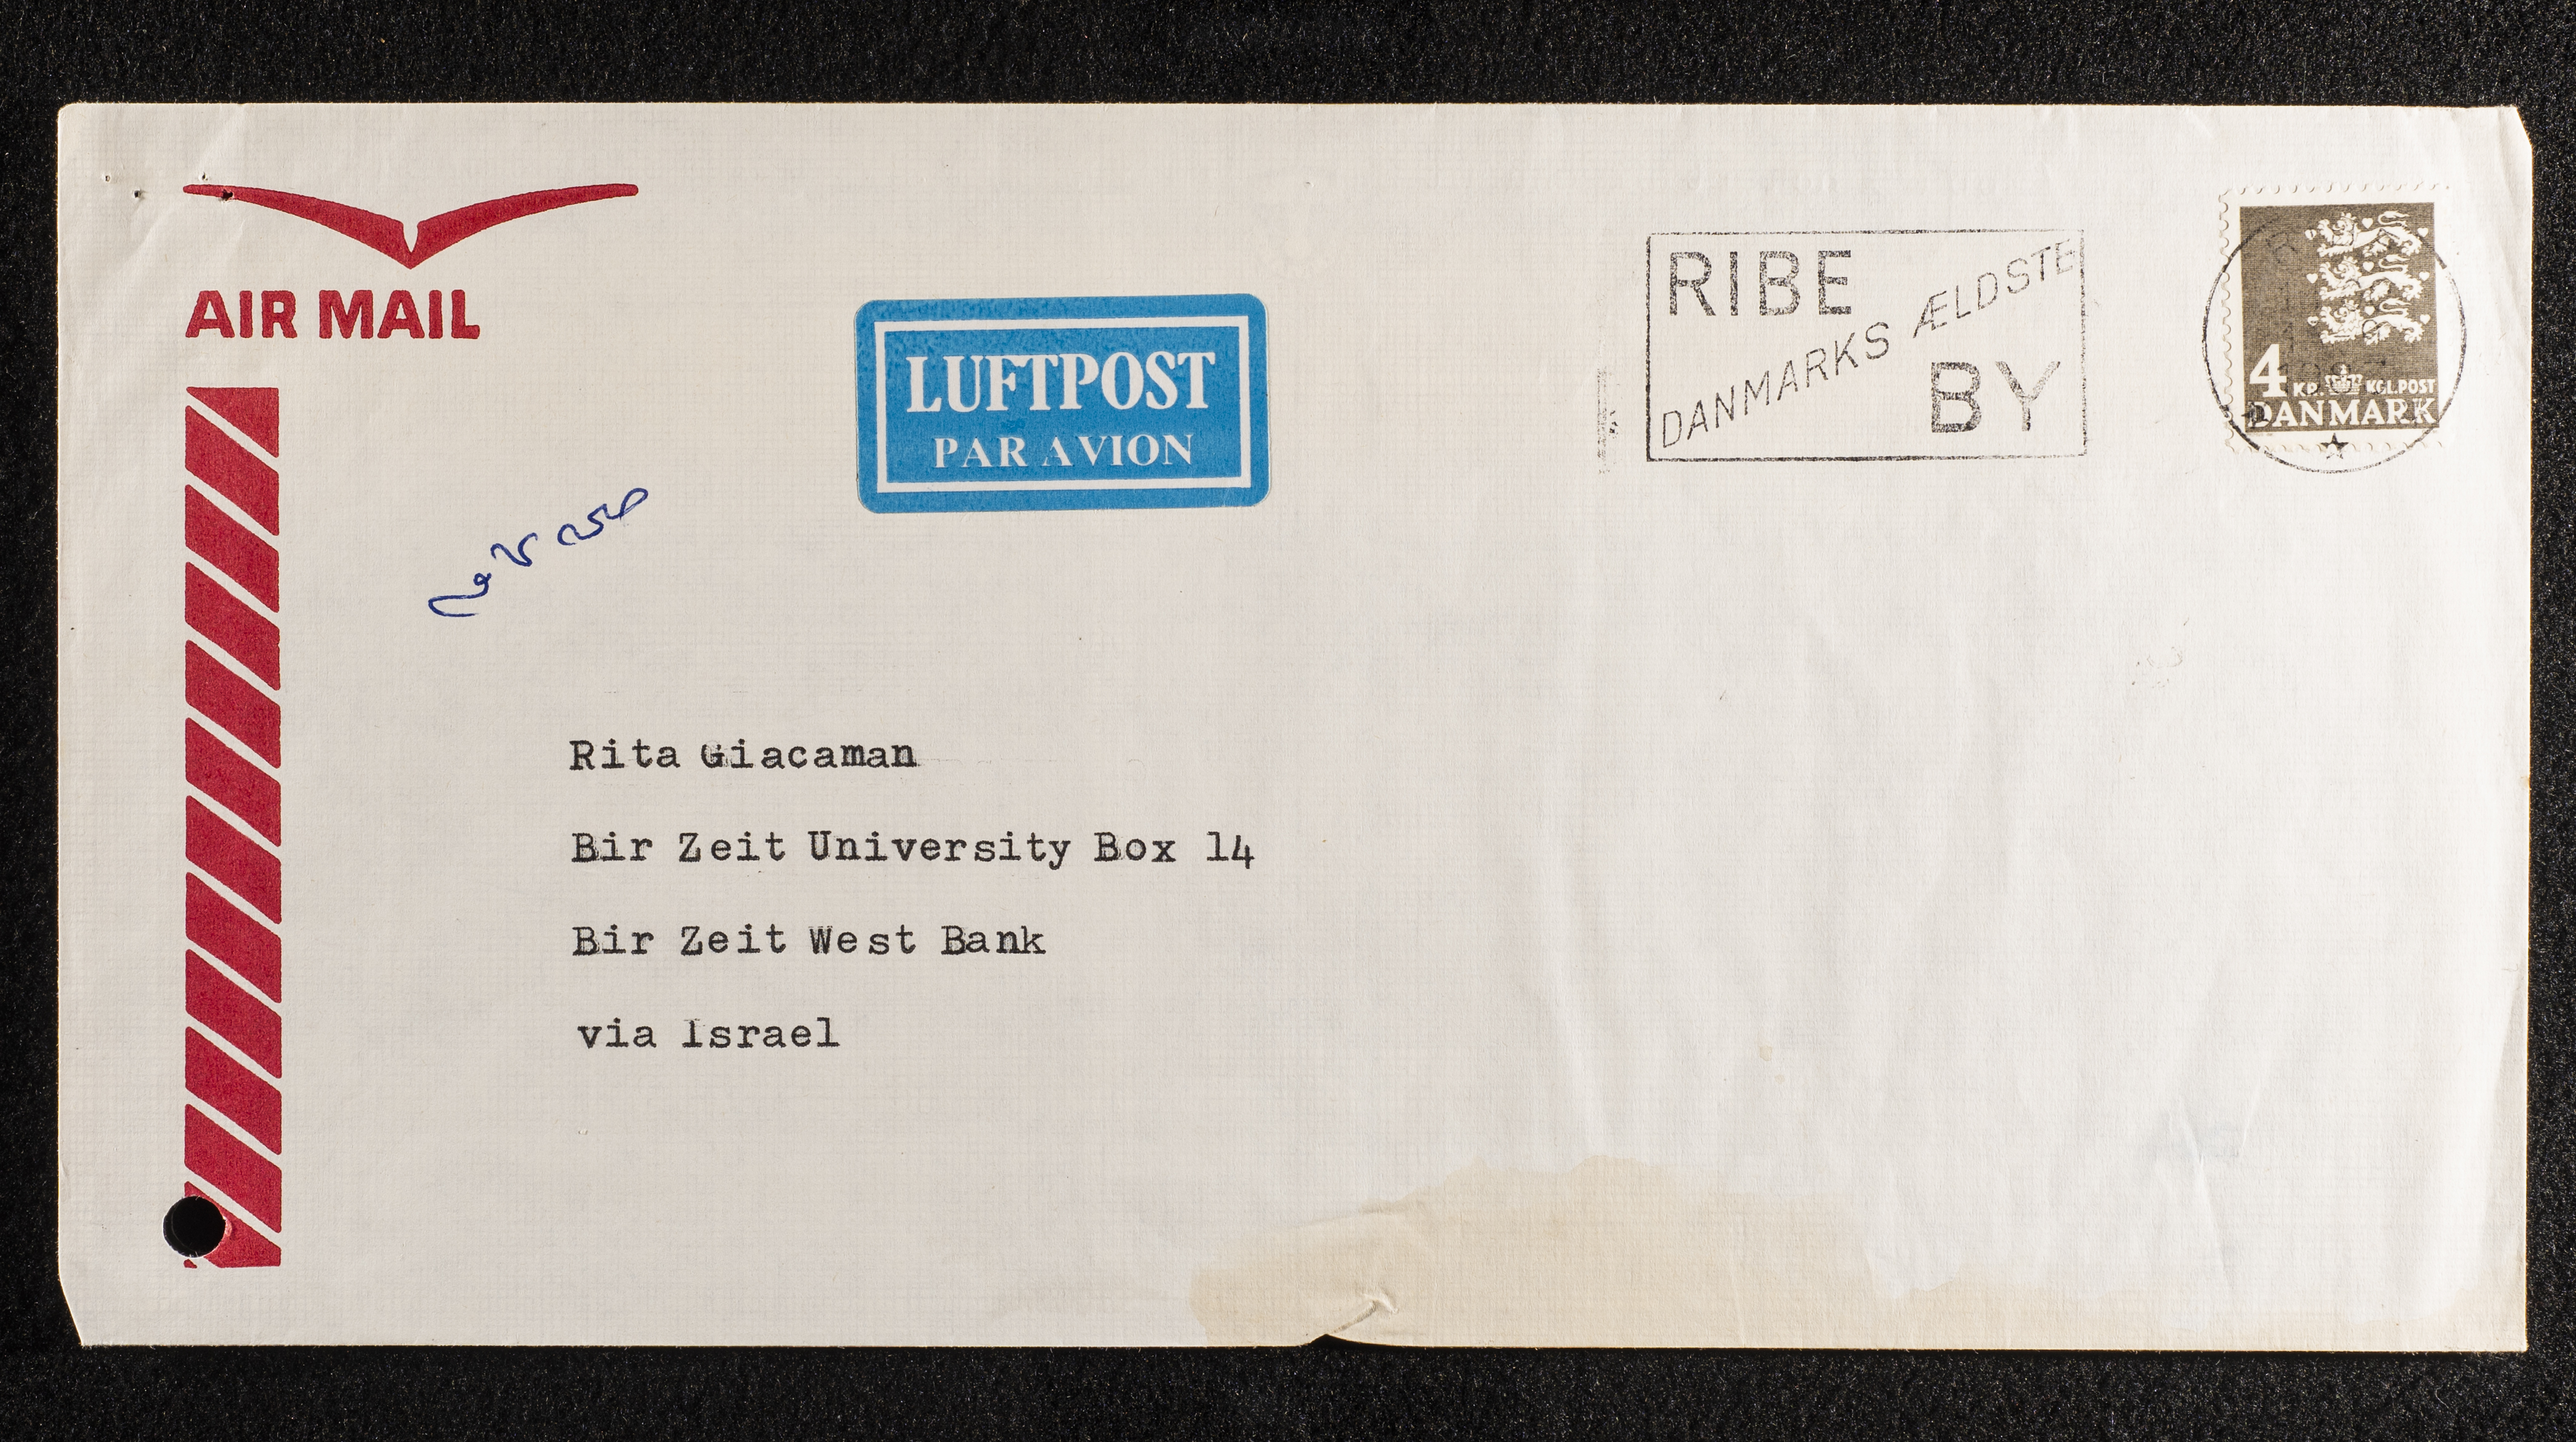 AIR MAIL
LUFTPOST
PAR AVION
RIBE
DANMARKS ÆLDSTE
BY
4 KR. KGL.POST
DANMARK
Rita Giacaman
Bir Zeit University Box 14
Bir Zeit West Bank
via Israel